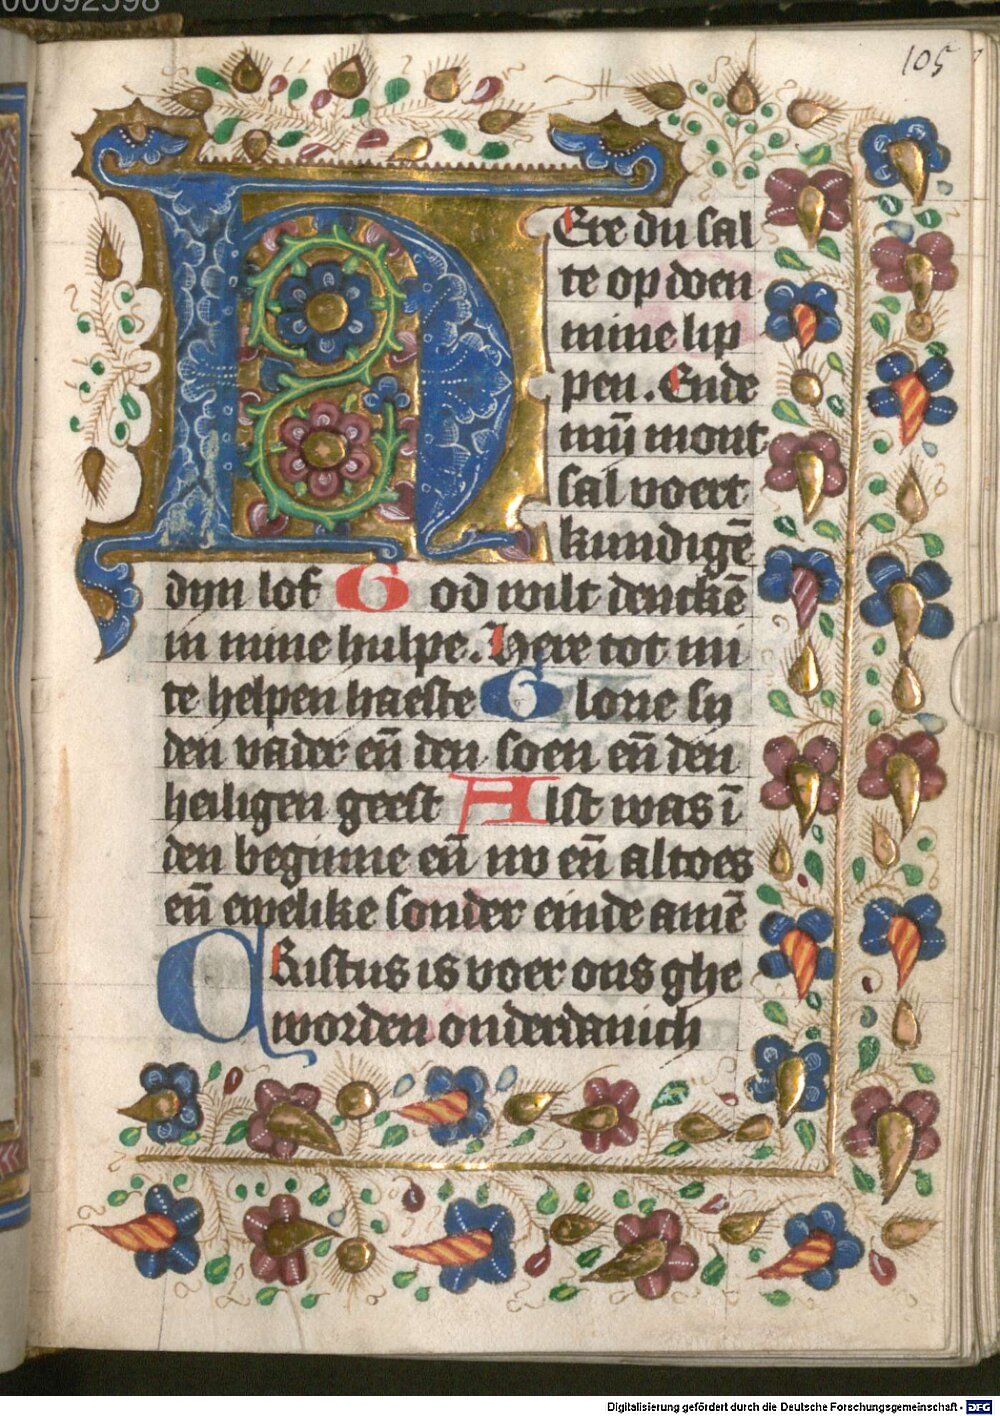 00092598
105
HEre du sal
te op doen
mine lip
pen. Ende
mijn mont
sal voert
kundigē
dyn lof God wilt denckē
in mine hulpe. Here tot mi
te helpen haeste Glorie sy
den vader eñ den soen eñ den
heiligen geest Alst was ī
den beginne eñ nv eñ altoes
eñ ewelike sonder einde amē
CRistus is voer ons ghe
worden onderdanich
Digitalisierung gefördert durch die Deutsche Forschungsgemeinschaft - DFG